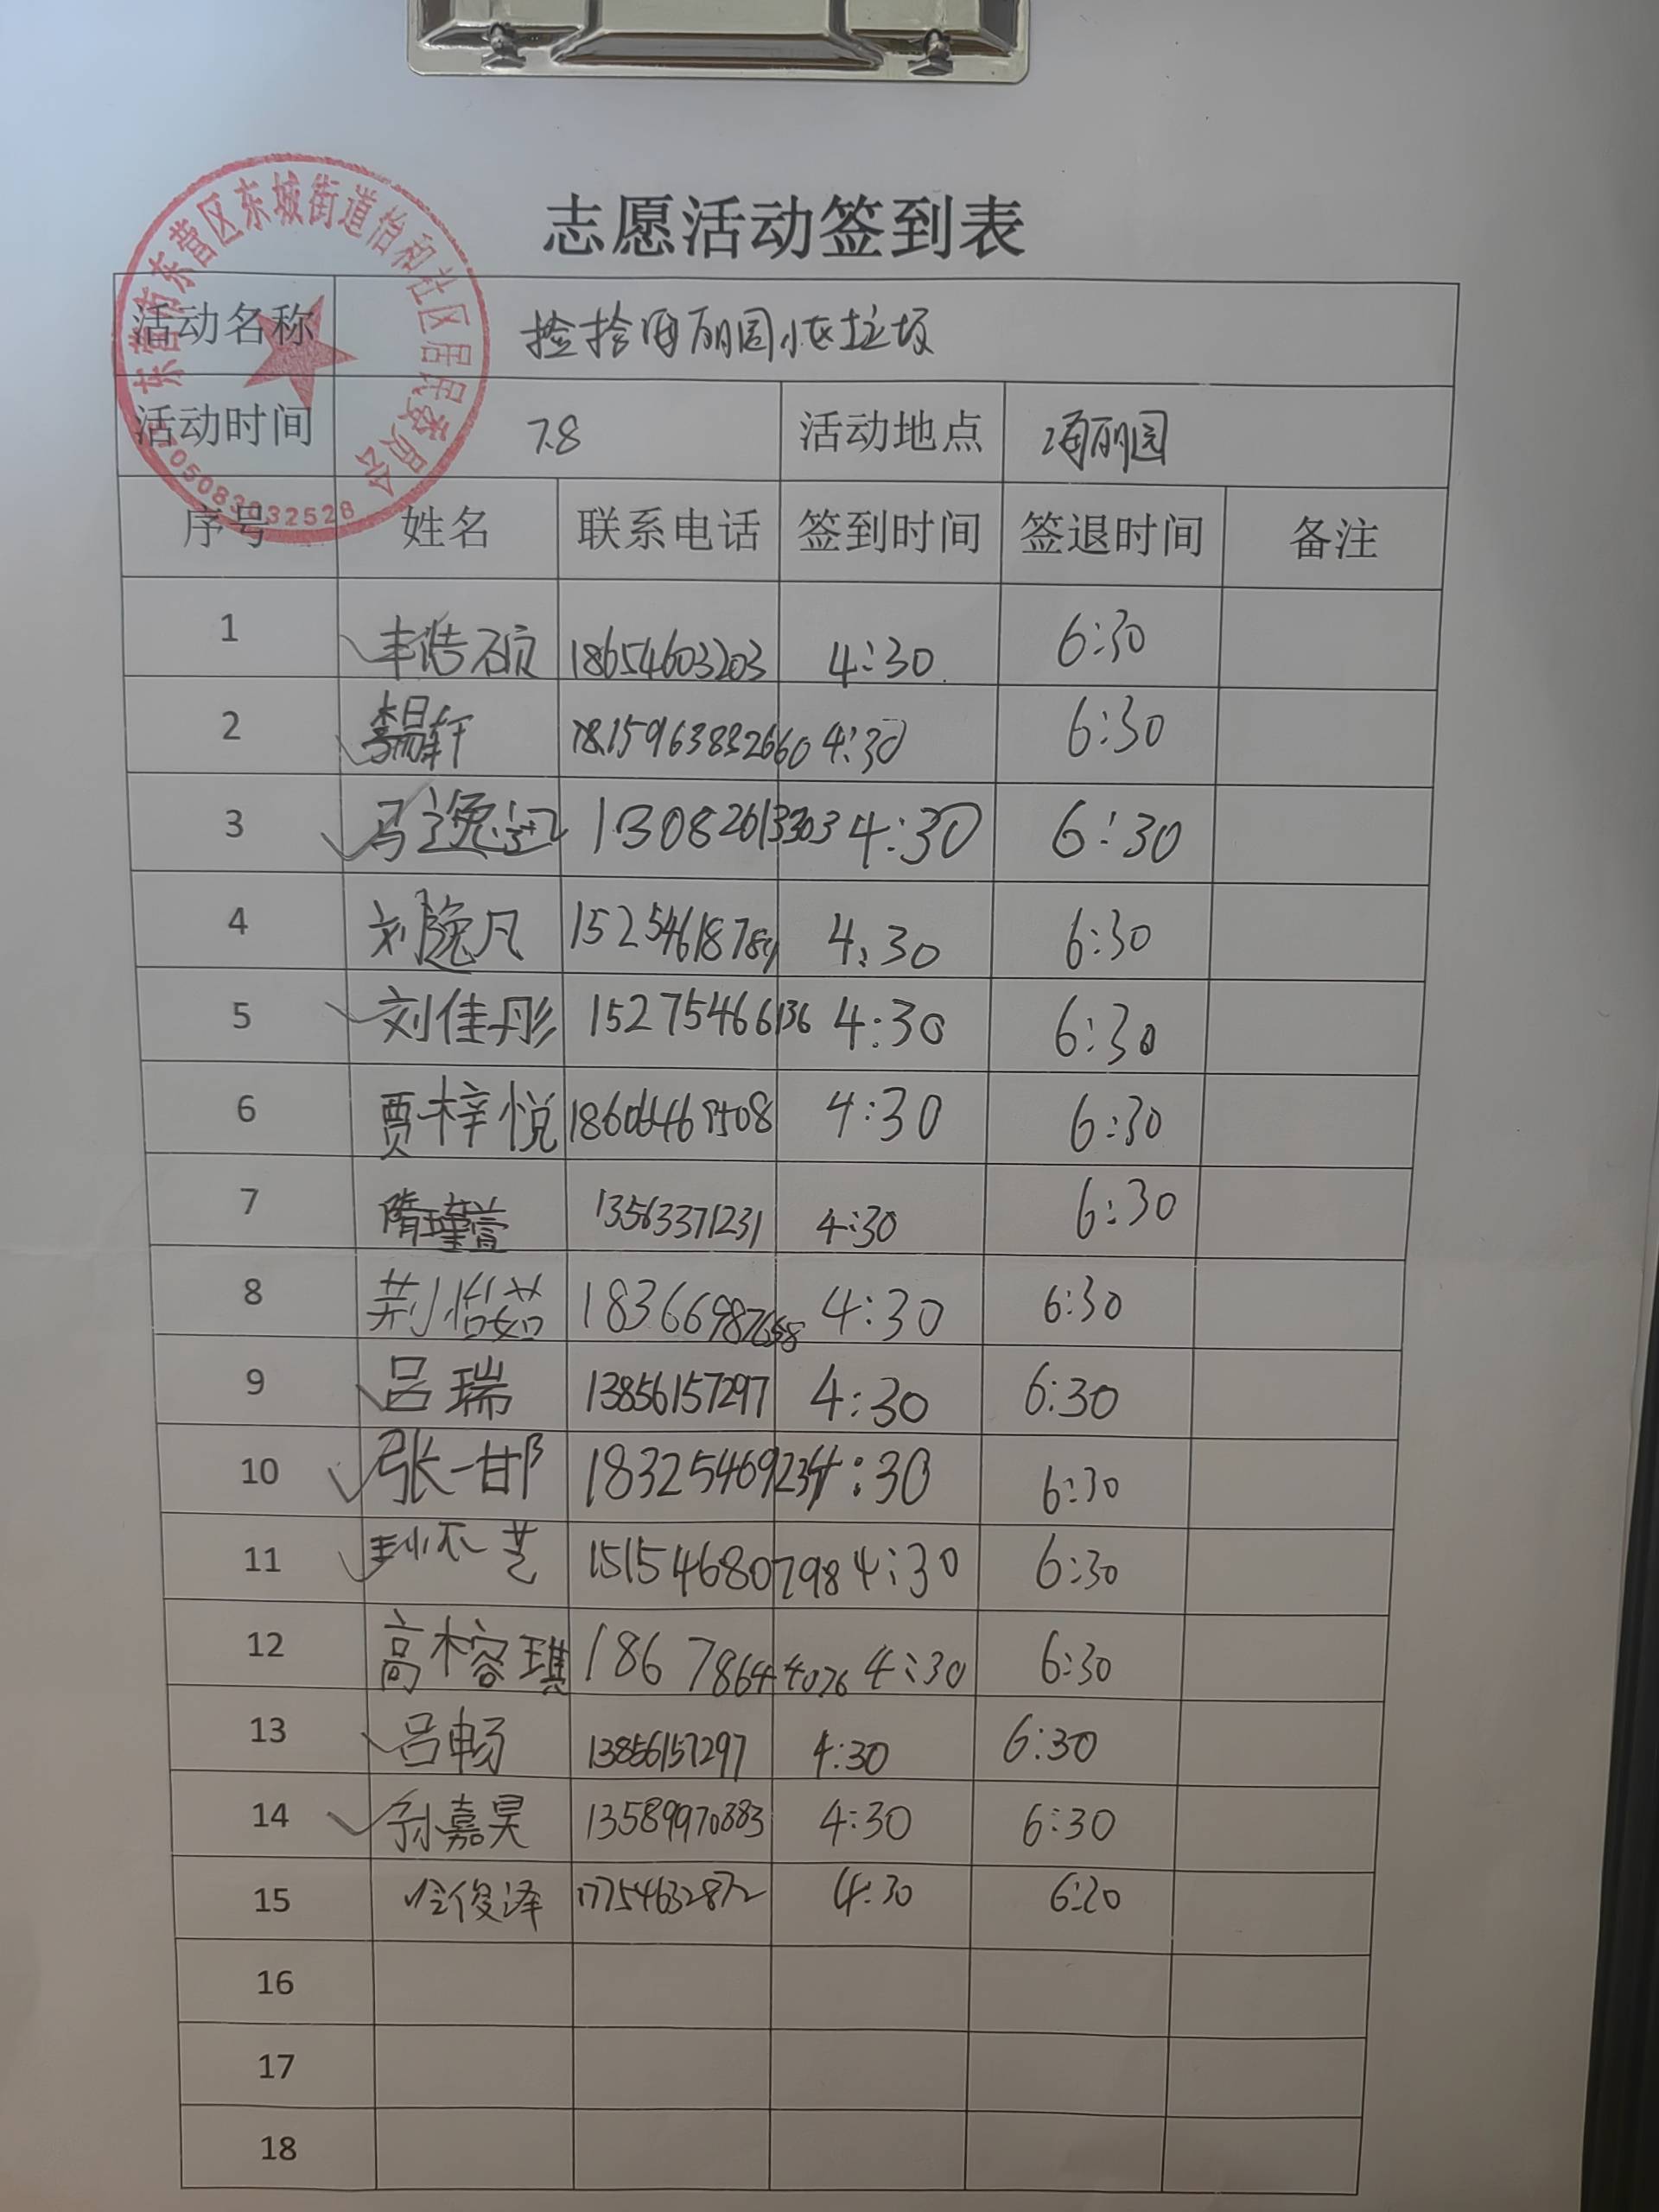 志愿活动签到表
东营市东营区东城街道怡和社区居民委员会
活动名称 捡拾海丽园小区垃圾
活动时间 7.8 活动地点 海丽园
序号 姓名 联系电话 签到时间 签退时间 备注
1 丰浩硕 18654603203 4:30 6:30
2 4:30 6:30
3 马逸 13082613303 4:30 6:30
4 刘逸凡 4:30 6:30
5 刘佳彤 15275466136 4:30 6:30
6 贾梓悦 4:30 6:30
7 隋瑾萱 13563371231 4:30 6:30
8 荆怡茹 4:30 6:30
9 吕瑞 13856157297 4:30 6:30
10 张一邯 4:30 6:30
11 15154680798 4:30 6:30
12 高榕琪 18678644076 4:30 6:30
13 吕畅 13856157297 4:30 6:30
14 孙嘉昊 13589970383 4:30 6:30
15 俊泽 17754632872 4:30 6:20
16
17
18